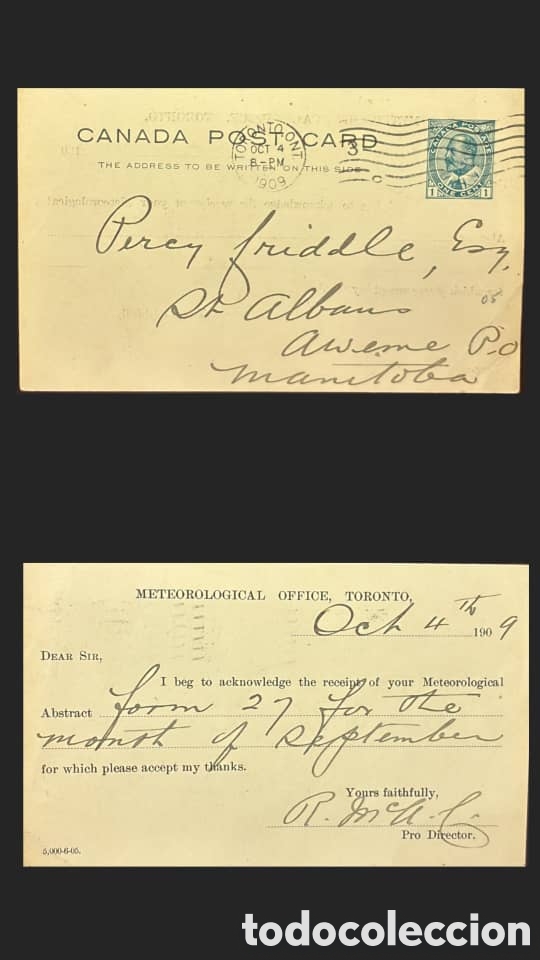 CANADA POST CARD
THE ADDRESS TO BE WRITTEN ON THIS SIDE
TORONTO, ONT
OCT 4
8-PM
1909
3
C
CANADA POSTAGE
1 ONE CENT 1
Percy Criddle, Esq.
St Albans
05
Aweme P.O
Manitoba
METEOROLOGICAL OFFICE, TORONTO,
Oct 4th 1909
DEAR SIR,
I beg to acknowledge the receipt of your Meteorological
Abstract form 27 for the
month of September
for which please accept my thanks.
Yours faithfully,
Pro Director.
5,000-6-05.
todocoleccion